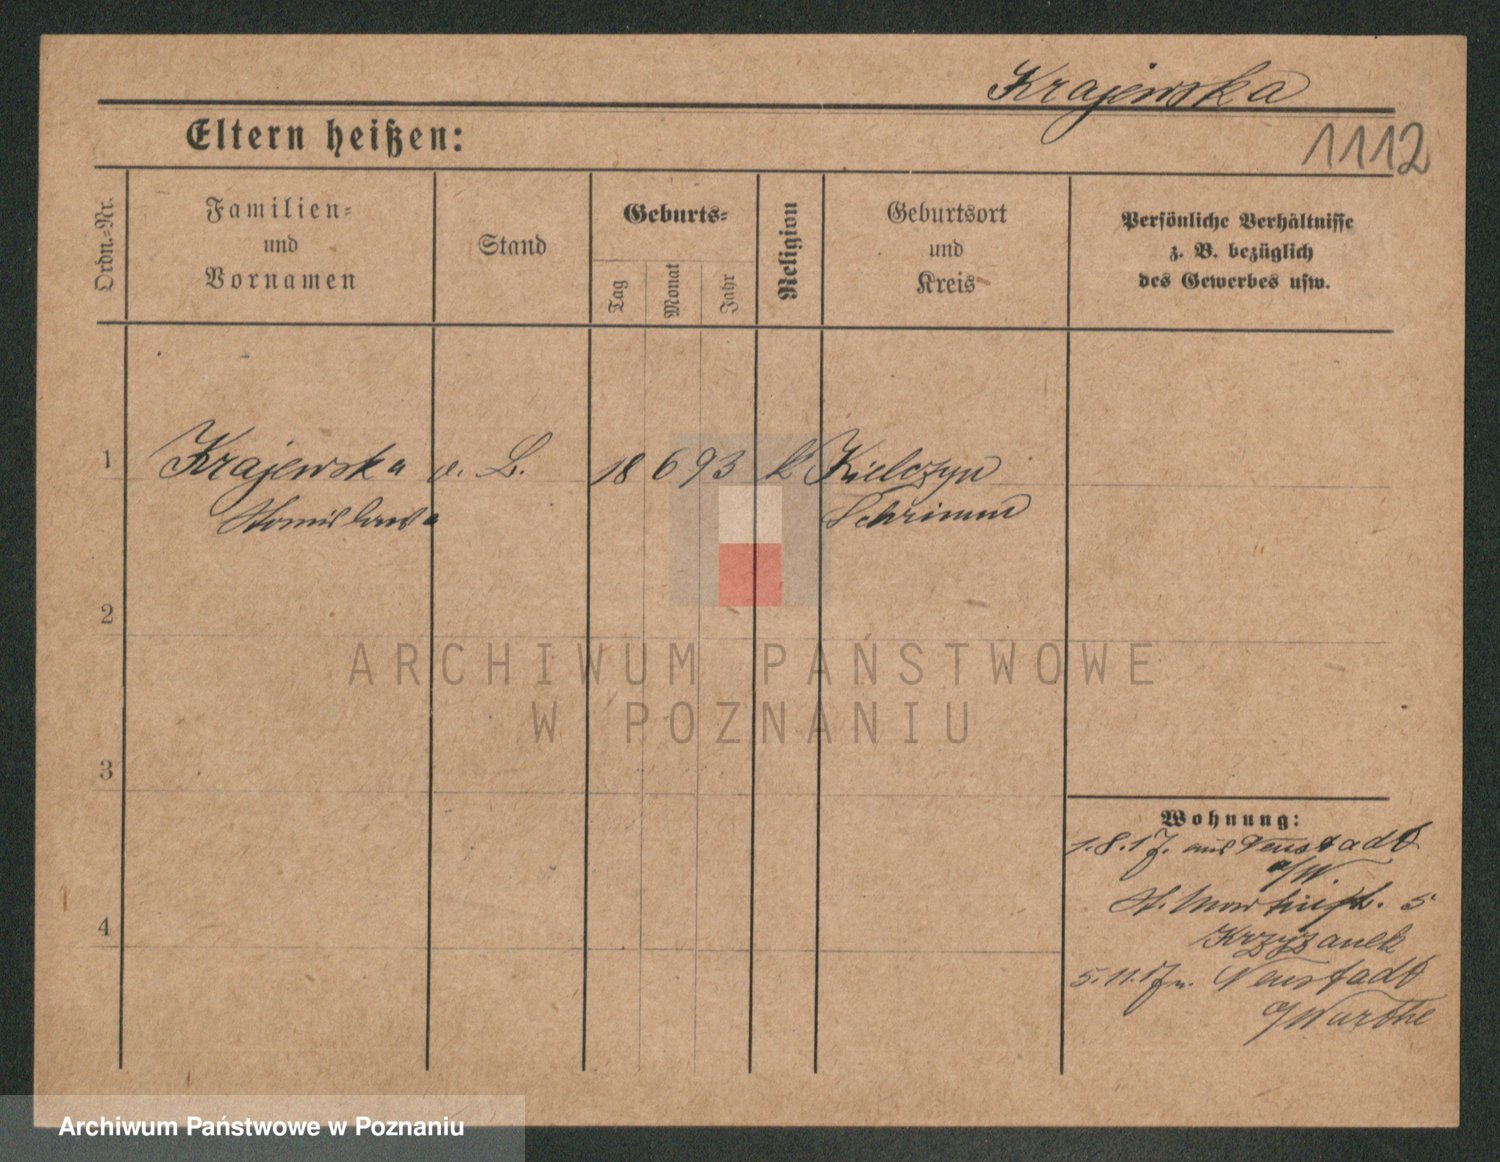 Krajewska
1112
Eltern heißen:
Ordn.-Nr.
Familien-
und
Vornamen
Stand
Geburts-
Tag
Monat
Jahr
Religion
Geburtsort
und
Kreis
Persönliche Verhältnisse
z. B. bezüglich
des Gewerbes usw.
1 Krajewska o. B. 18 6 93 k Kielczyn
Stanislawa Schrimm
2
3
4
Wohnung:
1.8.17. aus Neustadt
a/W.
St. 5
Krzyzanek
5.11.17 n. Neustadt
a/Warthe
ARCHIWUM PAŃSTWOWE
W POZNANIU
Archiwum Państwowe w Poznaniu